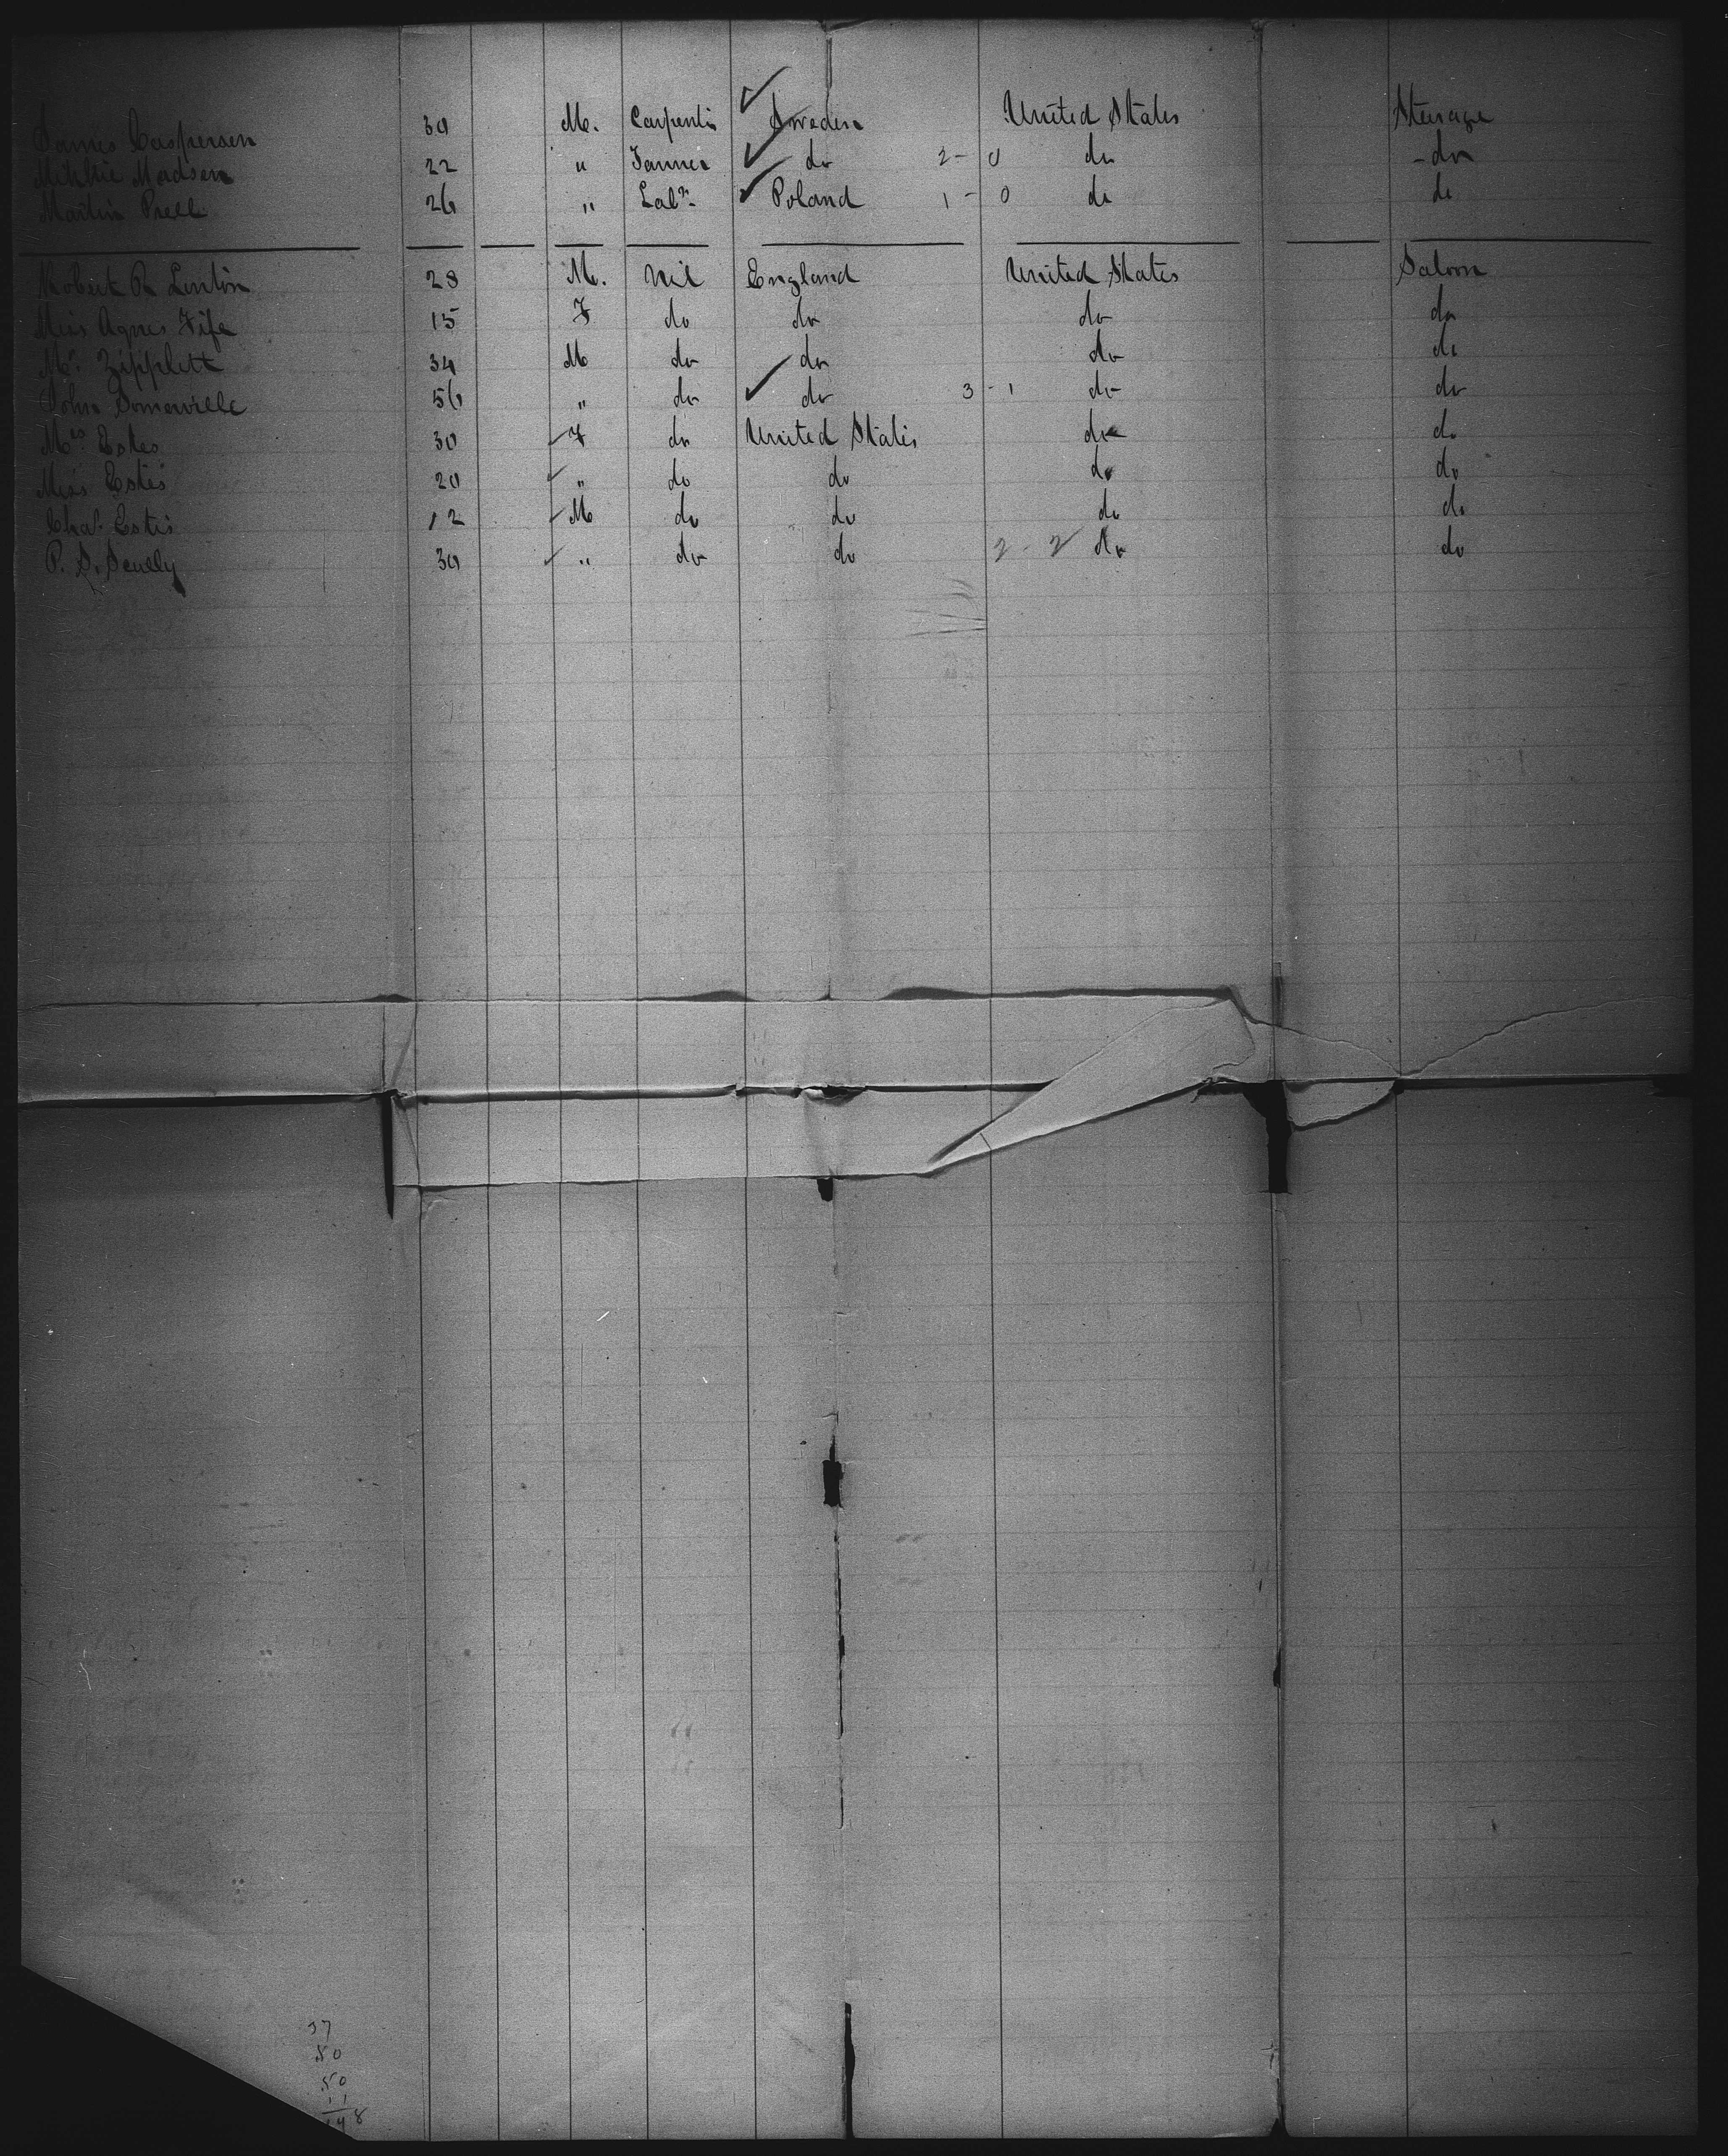 James Caspersen 30 M. Carpentr ✓ Sweden United States Steerage
Madsen 22 " Farmer ✓ do 2 - 0 do - do
Martin Prell 26 " Labr. ✓ Poland 1 - 0 do do
Robert R Lenton 28 M. Nil England United States Saloon
Miss Agnes Fife 15 F do do do do
Mr. Zipplett 34 M do do do do
John Somerville 56 " do ✓ do 3 - 1 do do
Mrs. Estes 30 ✓ F do United States do do
Miss Estes 20 ✓ " do do do do
Chas. Estes 12 ✓ M do do do do
P. S. Scully 30 ✓ " do do 2 - 2 do do
37
50
50
11
148